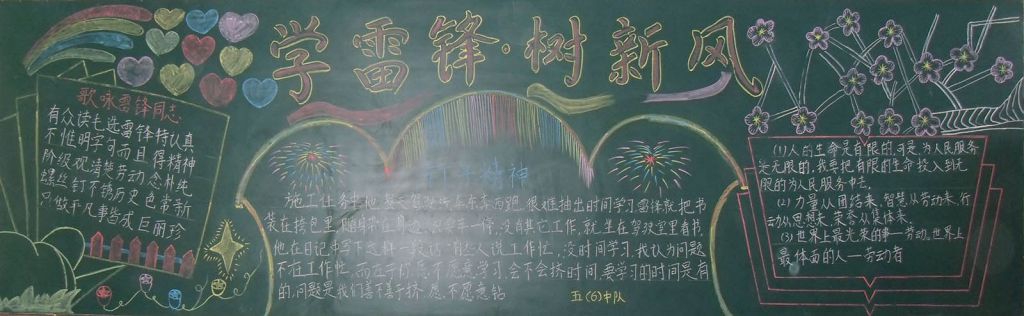 学雷锋·树新风
歌咏雷锋同志
有众读毛选雷锋特认真
不惟明学习而且得精神
阶级观清楚劳动念朴纯
螺丝钉不锈历史色常新
只做平凡事皆成巨丽珍
钉子精神
施工任务中他每天驾驶汽车东奔西跑,很难抽出时间学习雷锋就把书
装在挎包里,随身带在身边只要车一停,没有其它工作,就坐在驾驶室里看书,
他在日记中写下这样一段话:有些人说工作忙,没时间学习,我认为问题
不在工作忙,而在于你愿不愿意学习,会不会挤时间,要学习的时间是有
的,问题是我们善不善于挤,愿不愿意钻
五(6)中队
(1)人的生命是有限的,可是,为人民服务
是无限的,我要把有限的生命,投入到无
限的为人民服务中去。
(2)力量从团结来,智慧从劳动来,行
动从思想来,荣誉从集体来。
(3)世界上最光荣的事—劳动。世界上
最体面的人—劳动者